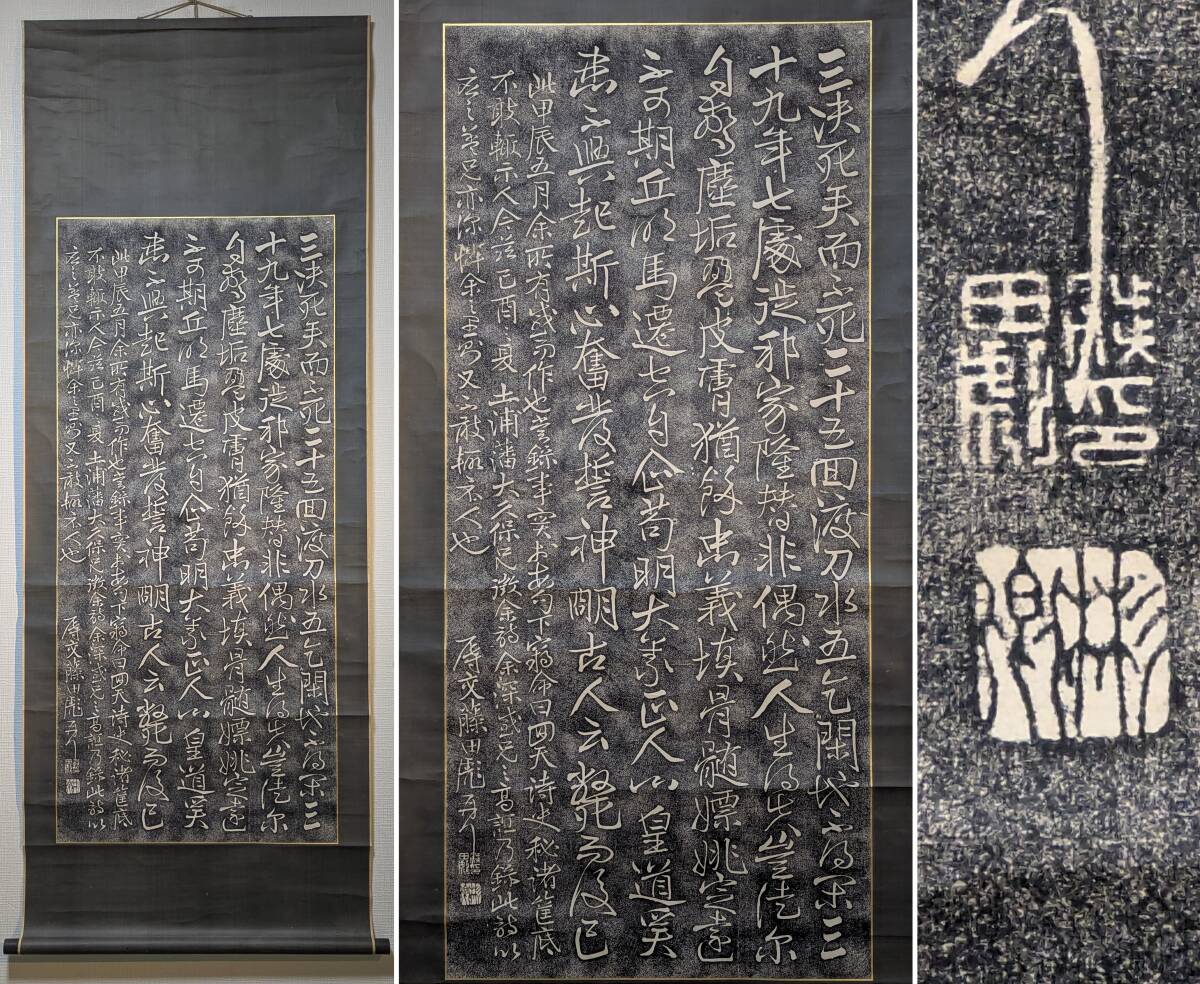 三決死矣而不死二十五回渡刀水五乞閑地不得閑三
十九年七處徙邦家隆替非偶然人生得失豈徒爾
自驚塵垢盈皮膚猶餘忠義填骨髓嫖姚定遠
不可期丘明馬遷空自企苟明大義正人心皇道奚
患不興起斯心奮發誓神明古人云斃而後已
此甲辰五月余所有感而作也 錄事實 命曰回天詩史秘諸筐底
不敢輒示人今茲己酉夏土浦藩大久保兄徵余詩余深感兄之高誼乃錄此詩以
應之若兄亦深 余之 又不敢 示人也
辱交藤田彪
彬卿